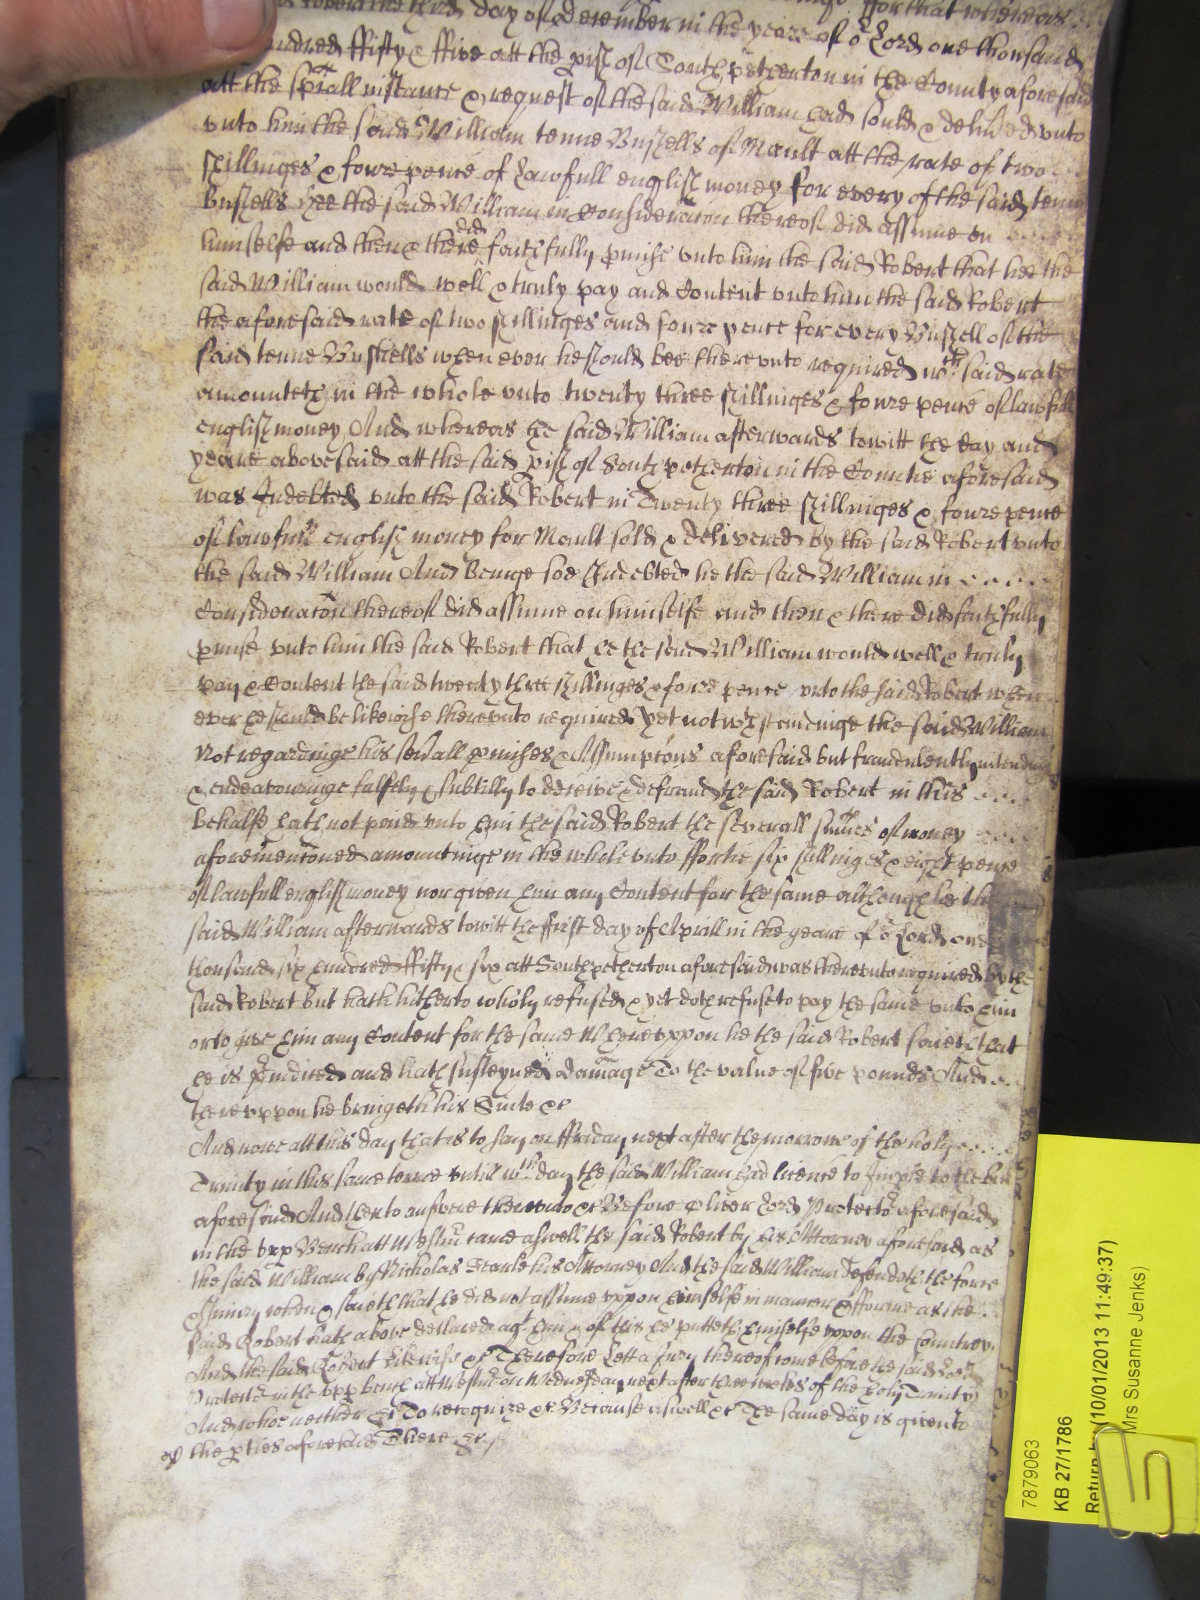 Robert the third day of December in the yeare of or Lord one thousand
hundred ffifty & ffive att the pish of South petherton in the County aforesaid
att the spiall instance & request of the said William had sould & deliv'ed unto
vnto him the said William tenne Bushells of Mault att the rate of two
shillinges & fowre pence of lawfull english money for every of the said tenn
Bushells hee the said William in Consideracon thereof did assume on
himselfe and then & there did faithfully pmise vnto him the said Robert that hee the
said William would well & truly pay and Content vnto him the said Robert
the aforesaid rate of two shillinges and fowre pence for every Bushell of the
said tenne Bushells when ever he should bee therevnto required wch said rate
amounteth in the whole vnto twenty three shillinges & fowre pence of lawfull
english money And whereas the said William afterwards towitt the day and
yeare abovesaid att the said pish of South petherton in the Countie aforesaid
was Indebted vnto the said Robert in Twenty three shillinges & fowre pence
of lawfull english money for Moult sold & delivered by the said Robert vnto
the said William And beinge soe Indebted he the said William in ....
Consideracon thereof did assume on himselfe and then & there did faithfully
pmise vnto him the said Robert that he the said William would well & truly
pay & Content the said twenty three shillinges & fowre pence vnto the said Robert when
ever he should be likewise therevnto required yet notwthstandinge the said William
not regardinge his sev'all pmises & Assumptons aforesaid but fraudulently intendinge
& endeavouringe falsely & subtilly to deceive & defraud the said Robert in this ....
behalfe hath not paid vnto him the said Robert the severall sumes of money
aforemenconed amountinge in the whole vnto ffortie six shillinges & eight pence
of lawfull english money nor given him any Content for the same although he the
said William afterwards towitt the ffirst day of Aprill in the yeare of or Lord one
thousand six hundred ffifty & six att Southpetherton aforesaid was therevnto required by the
said Robert but hath hitherto wholy refused & yet doth refuse to pay the same vnto him
or to give him any Content for the same Wherevppon he the said Robert saieth that
he is pjudiced and hath susteyned damage To the value of five pounds And
therevppon he bringeth his Suite &c
And nowe att this day that is to say on ffriday next after the morrowe of the holy ....
Trinity in this same terme vntill wch day the said William had licence to Imple to the bill
aforesaid And then to answere therevnto &c Before Oliver Lord Protector aforesaid
in the vpp Bench att Westmr came aswell the said Robert by his Attorney aforesaid as
the said William by Nicholas Searle his Attorney And the said William defendeth the force
& Iniury when &c saieth that he did not assume vppon himselfe in manner & fforme as the
said Robert hath above declared agt him & of this he putteth himselfe vppon the Countrey
And the said Robert likewise &c Therefore Lett a Jury thereof come before the said Lord
Protectr in the vpp bench att Westmr on Wednesday next after three weekes of the holy Trinity
And who neither &c To recognize &c Because aswell &c The same day is given to
the pties aforesaid There &c
7879063
KB 27/1786
Return by (10/01/2013 11:49:37)
Mrs Susanne Jenks)